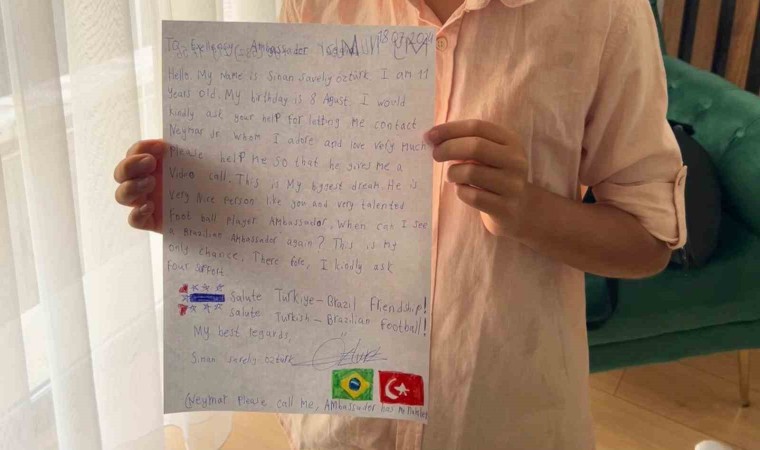 To Excellency Ambassador 18.07.2024
Hello. My Name is Sinan Saveliy öztürk I am 11
years old. My birthday is 8 Agust. I would
kindly ask your help for letting me contact
Neymar Jr. whom I adore and love very much
Please help me so that he gives me a
Video call. This is my biggest dream. He is
very Nice Person like you and very talented
Foot ball player Ambassador. When can I see
a Brazilian Ambassador again? This is my
only chance. There fore, I kindly ask
Salute Türkiye - Brazil Friendship!
Salute Turkish - Brazilian Football!
My best regards,
Sinan öztürk
(Neymar Please call me, Ambassador has my